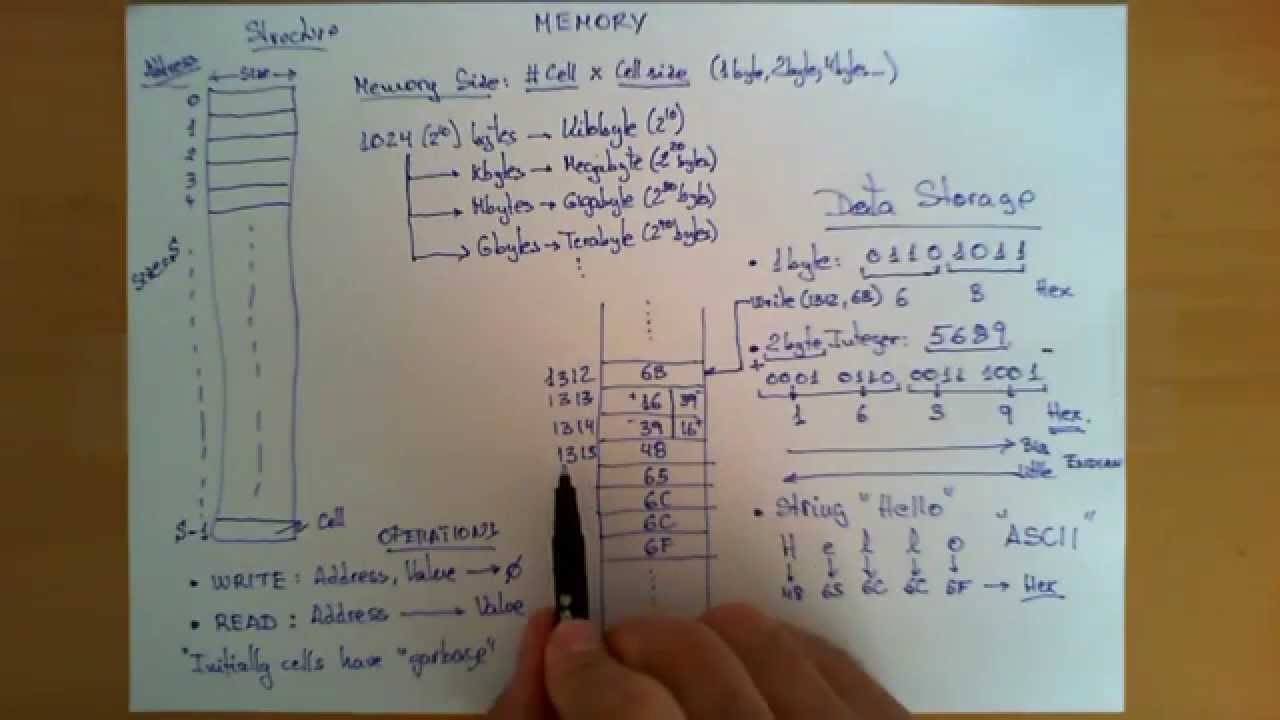 MEMORY
Structure
Address
Size
0
1
2
3
4
Size=S
S-1
Cell
Memory Size: #Cell x Cell size (1byte, 2byte, 4bytes...)
1024 (2^10) bytes → Kilobyte (2^10)
Kbytes → Megabyte (2^20 bytes)
Mbytes → Gigabyte (2^30 bytes)
Gbytes → Terabyte (2^40 bytes)
OPERATIONS
• WRITE: Address, Value → Ø
• READ: Address → Value
"Initially cells have "garbage"
1312 6B
1313 + 16 39 -
1314 - 39 16 +
1315 48
65
6C
6C
6F
Data Storage
• 1byte: 0110 1011
Write (1312, 6B) 6 B Hex
• 2byte Integer: 5689
+ -
0001 0110 0011 1001
1 6 3 9 Hex.
Big
Little ENDIAN
• String "Hello"
"ASCII"
H e l l o
48 65 6C 6C 6F → Hex